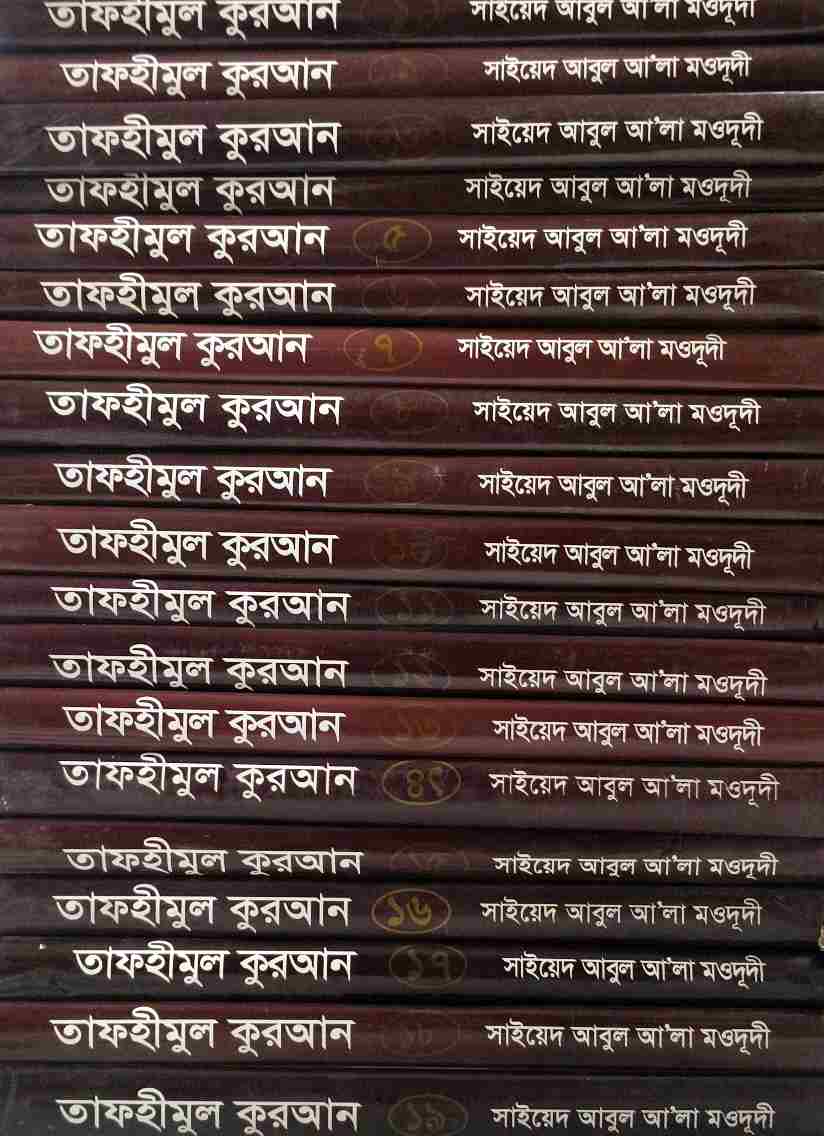 তাফহীমুল কুরআন ১ সাইয়েদ আবুল আ'লা মওদূদী
তাফহীমুল কুরআন সাইয়েদ আবুল আ'লা মওদূদী
তাফহীমুল কুরআন সাইয়েদ আবুল আ'লা মওদূদী
তাফহীমুল কুরআন সাইয়েদ আবুল আ'লা মওদূদী
তাফহীমুল কুরআন ৫ সাইয়েদ আবুল আ'লা মওদূদী
তাফহীমুল কুরআন ৬ সাইয়েদ আবুল আ'লা মওদূদী
তাফহীমুল কুরআন ৭ সাইয়েদ আবুল আ'লা মওদূদী
তাফহীমুল কুরআন ৮ সাইয়েদ আবুল আ'লা মওদূদী
তাফহীমুল কুরআন ৯ সাইয়েদ আবুল আ'লা মওদূদী
তাফহীমুল কুরআন ১০ সাইয়েদ আবুল আ'লা মওদূদী
তাফহীমুল কুরআন ১১ সাইয়েদ আবুল আ'লা মওদূদী
তাফহীমুল কুরআন ১২ সাইয়েদ আবুল আ'লা মওদূদী
তাফহীমুল কুরআন ১৩ সাইয়েদ আবুল আ'লা মওদূদী
তাফহীমুল কুরআন ১৪ সাইয়েদ আবুল আ'লা মওদূদী
তাফহীমুল কুরআন ১৫ সাইয়েদ আবুল আ'লা মওদূদী
তাফহীমুল কুরআন ১৬ সাইয়েদ আবুল আ'লা মওদূদী
তাফহীমুল কুরআন ১৭ সাইয়েদ আবুল আ'লা মওদূদী
তাফহীমুল কুরআন ১৮ সাইয়েদ আবুল আ'লা মওদূদী
তাফহীমুল কুরআন ১৯ সাইয়েদ আবুল আ'লা মওদূদী